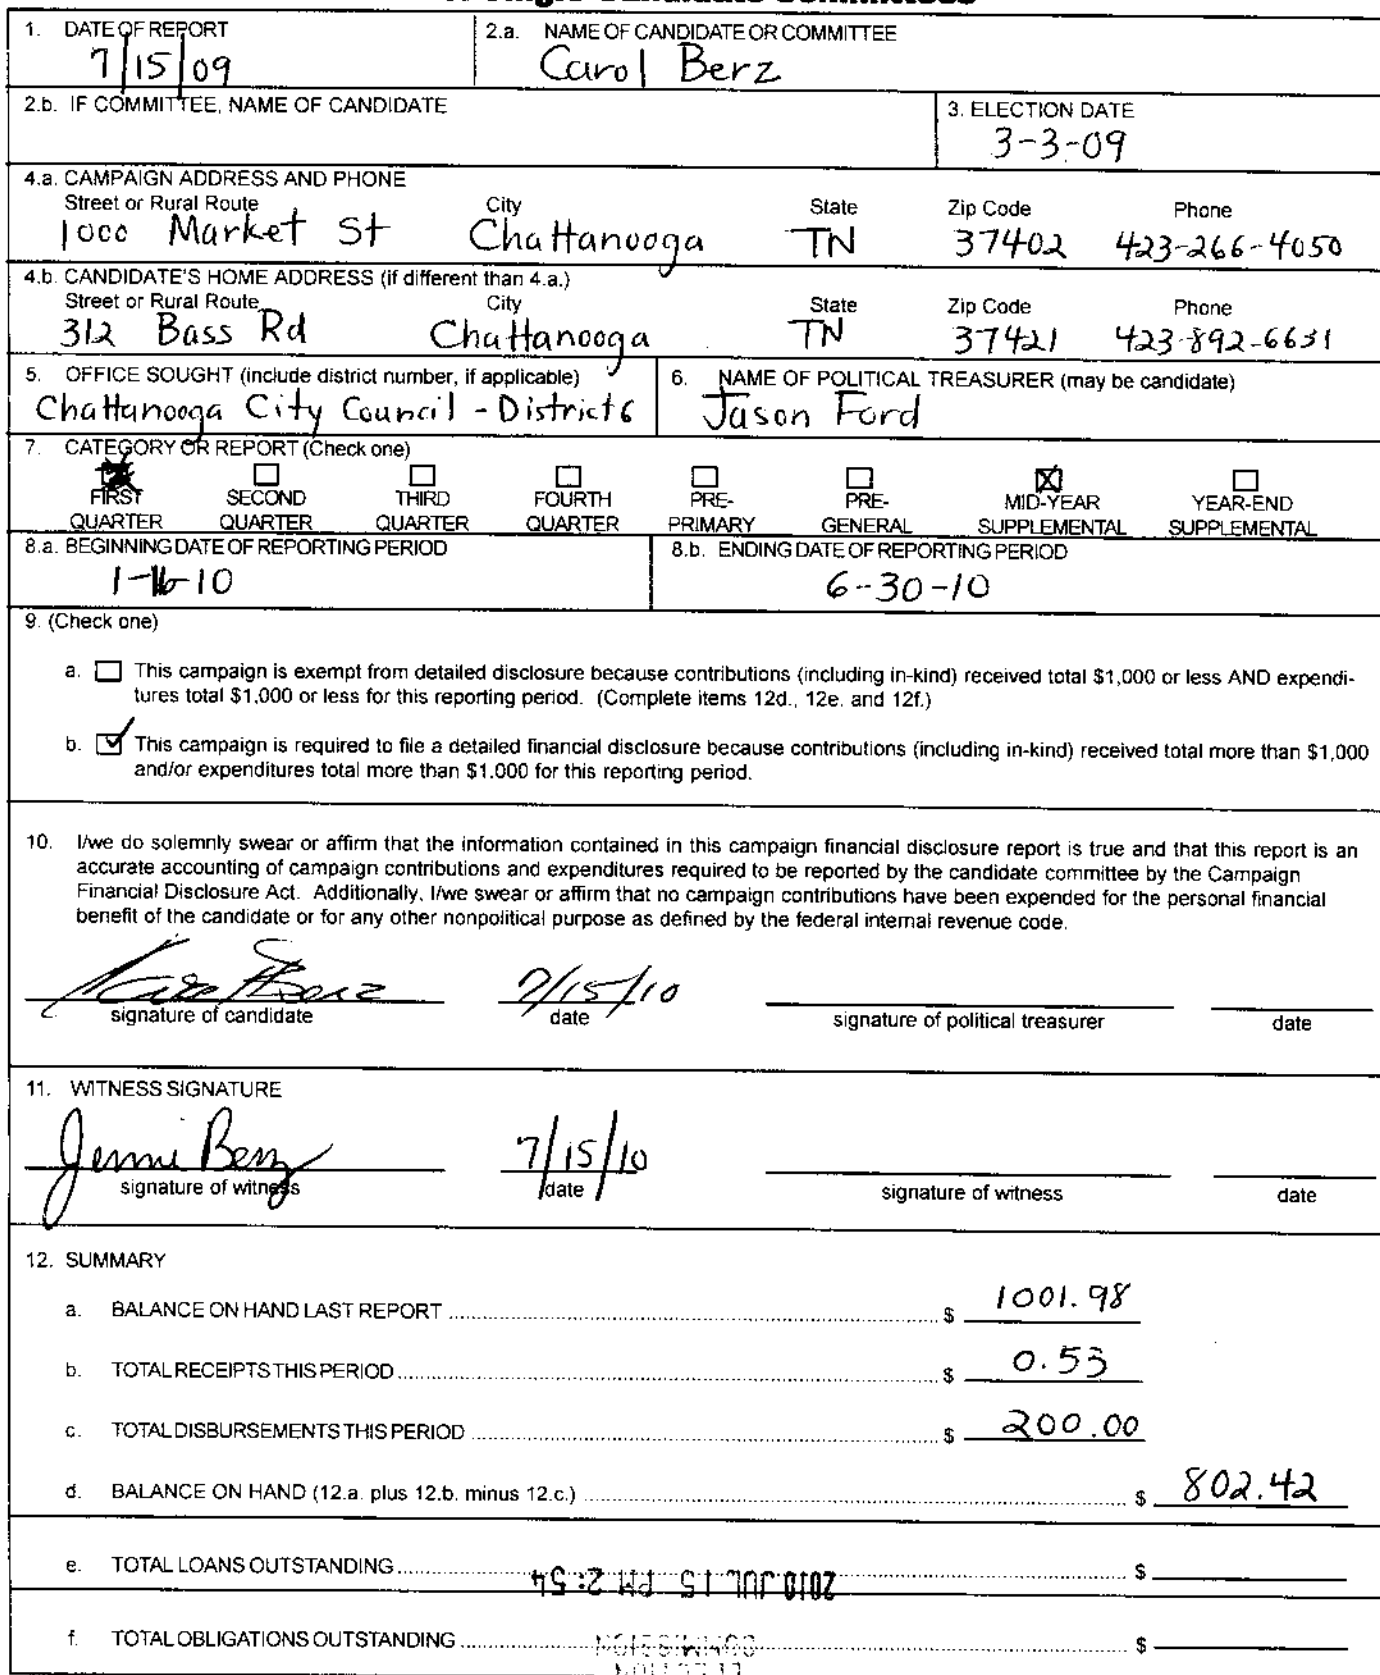 1. DATE OF REPORT
7/15/09
2.a. NAME OF CANDIDATE OR COMMITTEE
Carol Berz
2.b. IF COMMITTEE, NAME OF CANDIDATE
3. ELECTION DATE
3-3-09
4.a. CAMPAIGN ADDRESS AND PHONE
Street or Rural Route City State Zip Code Phone
1000 Market St Chattanooga TN 37402 423-266-4050
4.b. CANDIDATE'S HOME ADDRESS (if different than 4.a.)
Street or Rural Route City State Zip Code Phone
312 Bass Rd Chattanooga TN 37421 423-892-6631
5. OFFICE SOUGHT (include district number, if applicable)
Chattanooga City Council - District 6
6. NAME OF POLITICAL TREASURER (may be candidate)
Jason Ford
7. CATEGORY OR REPORT (Check one)
FIRST QUARTER
SECOND QUARTER
THIRD QUARTER
FOURTH QUARTER
PRE-PRIMARY
PRE-GENERAL
MID-YEAR SUPPLEMENTAL
YEAR-END SUPPLEMENTAL
8.a. BEGINNING DATE OF REPORTING PERIOD
1-16-10
8.b. ENDING DATE OF REPORTING PERIOD
6-30-10
9. (Check one)
a. This campaign is exempt from detailed disclosure because contributions (including in-kind) received total $1,000 or less AND expendi-
tures total $1,000 or less for this reporting period. (Complete items 12d., 12e. and 12f.)
b. This campaign is required to file a detailed financial disclosure because contributions (including in-kind) received total more than $1,000
and/or expenditures total more than $1.000 for this reporting period.
10. I/we do solemnly swear or affirm that the information contained in this campaign financial disclosure report is true and that this report is an
accurate accounting of campaign contributions and expenditures required to be reported by the candidate committee by the Campaign
Financial Disclosure Act. Additionally, I/we swear or affirm that no campaign contributions have been expended for the personal financial
benefit of the candidate or for any other nonpolitical purpose as defined by the federal internal revenue code.
7/15/10
signature of candidate date signature of political treasurer date
11. WITNESS SIGNATURE
Jenni Berz 7/15/10
signature of witness date signature of witness date
12. SUMMARY
a. BALANCE ON HAND LAST REPORT $ 1001.98
b. TOTAL RECEIPTS THIS PERIOD $ 0.53
c. TOTAL DISBURSEMENTS THIS PERIOD $ 200.00
d. BALANCE ON HAND (12.a. plus 12.b. minus 12.c.) $ 802.42
e. TOTAL LOANS OUTSTANDING $
2010 JUL 15 PM 2:54
f. TOTAL OBLIGATIONS OUTSTANDING $
COMMISSION
ELECTION